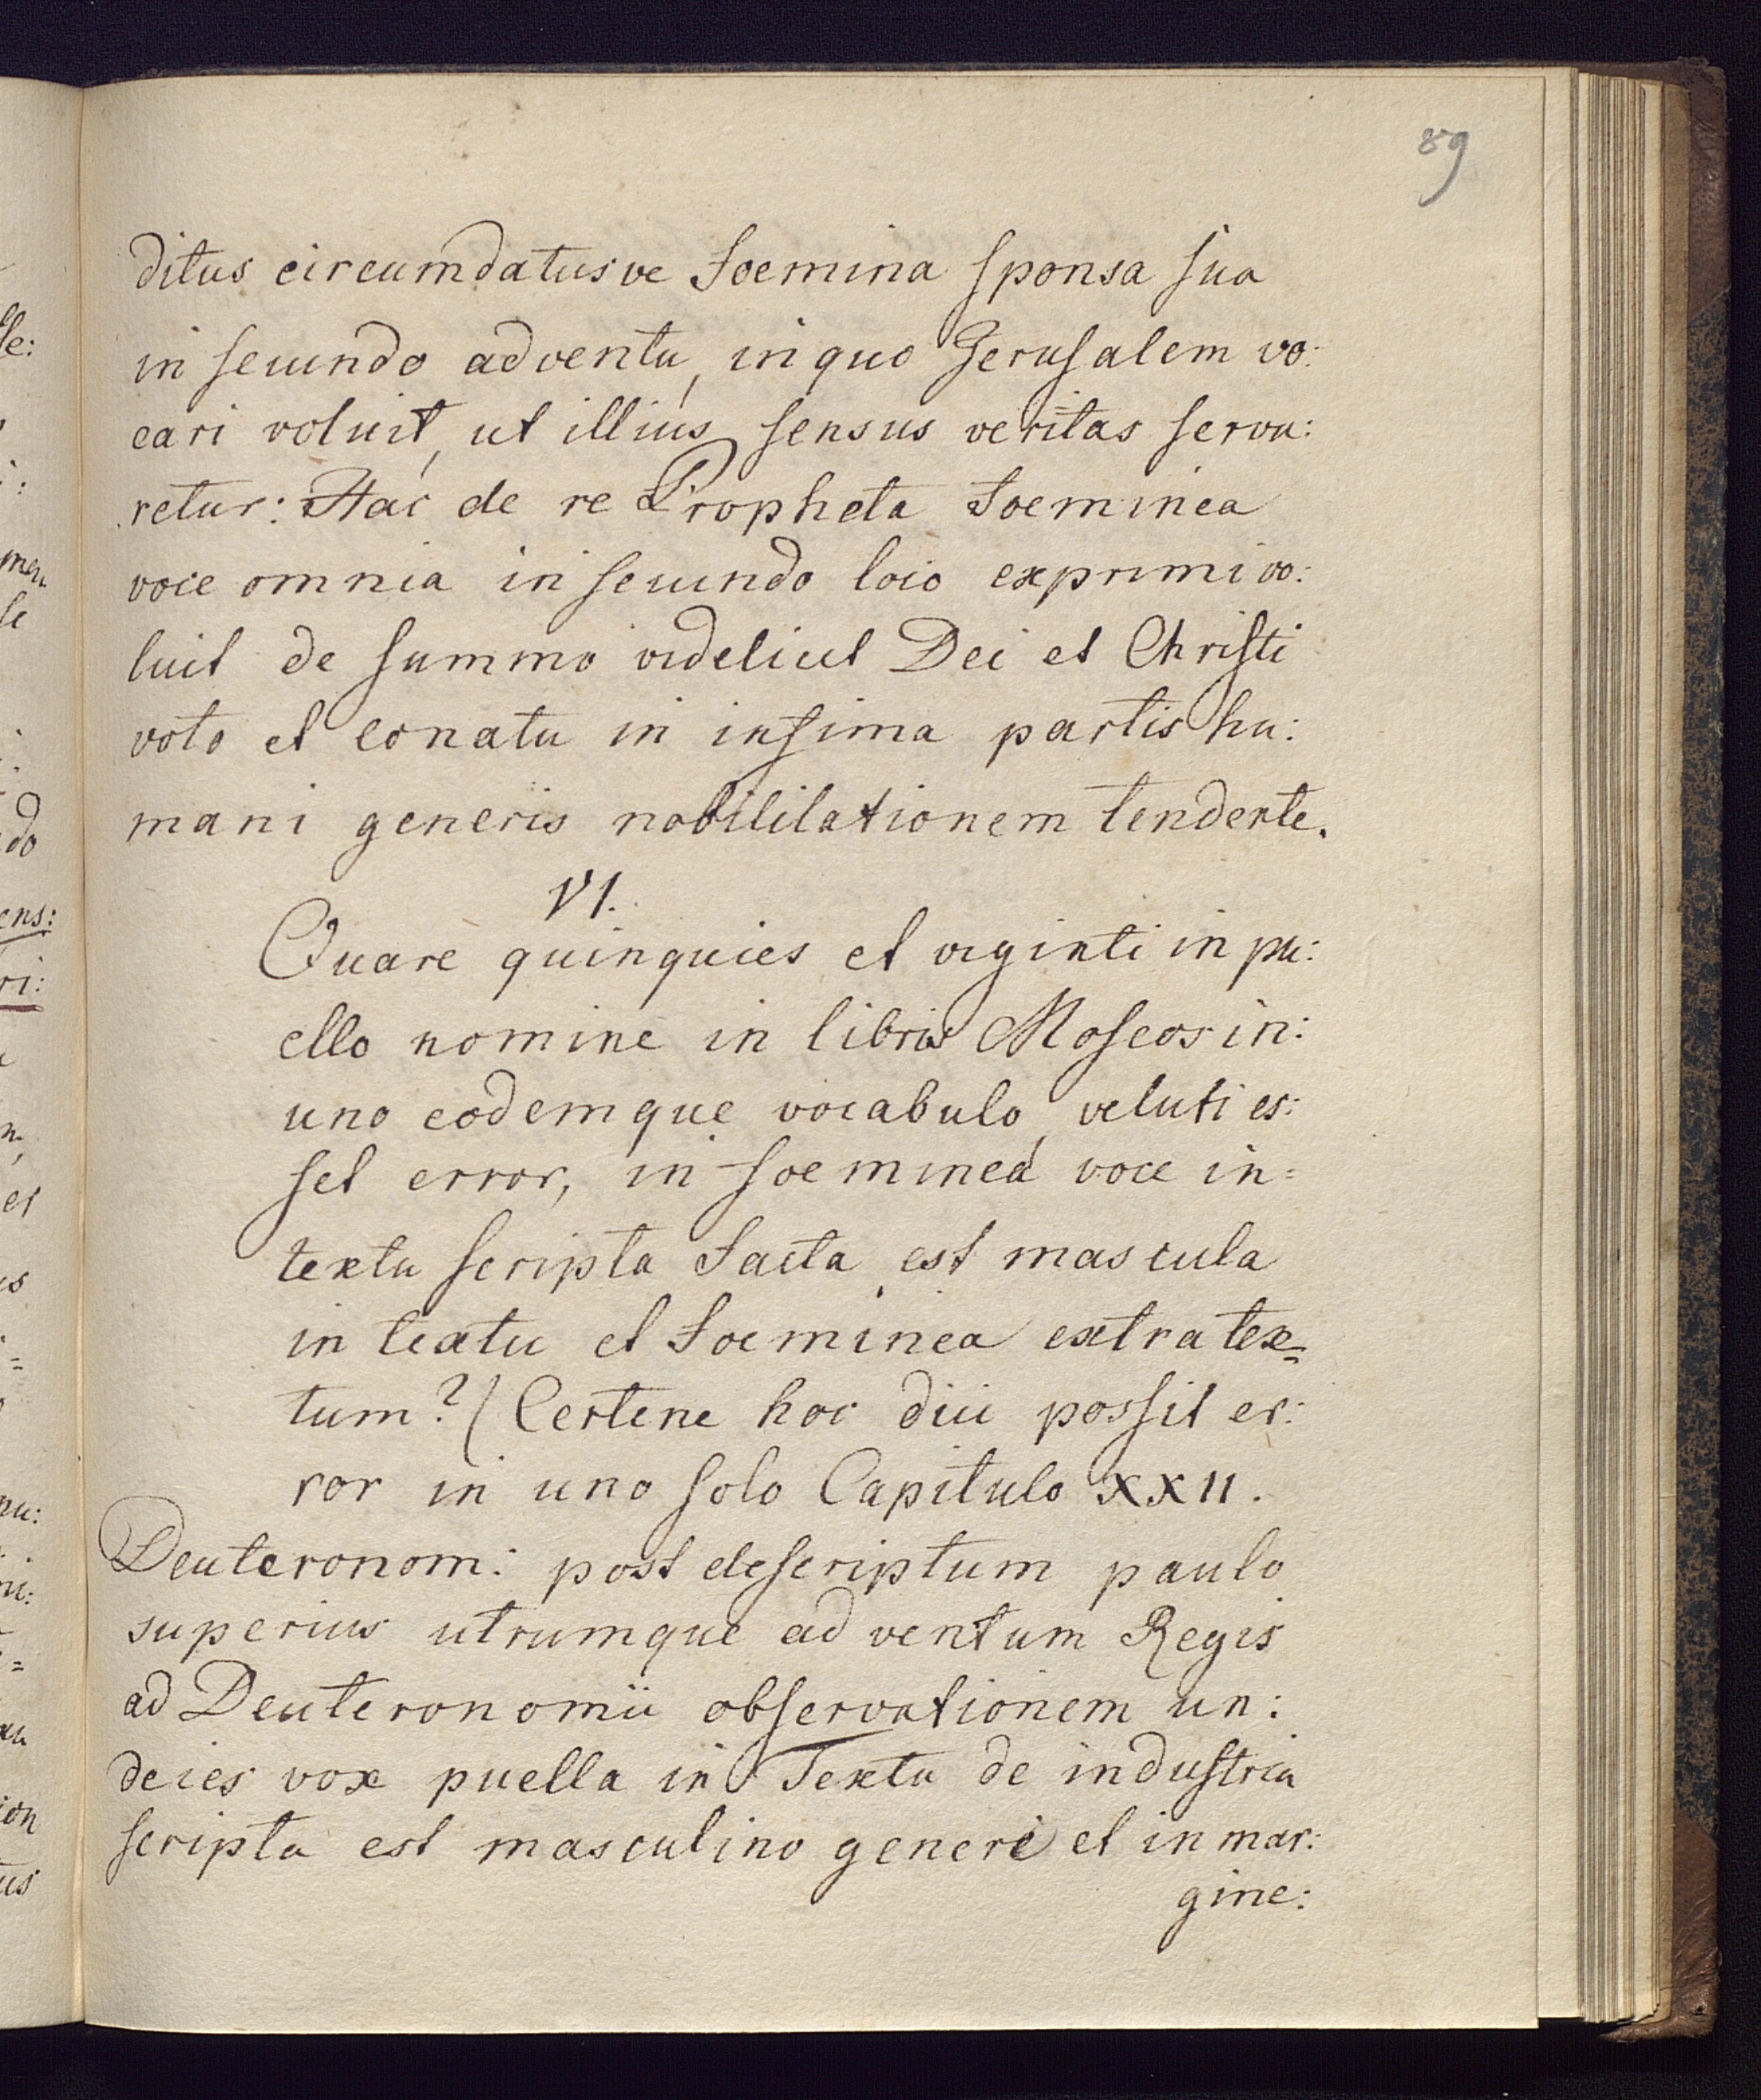 89
ditus circumdatusve foemina sponsa sua
in secundo adventu, in quo Jerusalem vo:
cari voluit, ut illius sensus veritas serva:
retur: Hac de re Propheta foeminea
voce omnia in secundo loco exprimi vo:
luit de summo videlicet Dei et Christi
voto et conatu in infima partis hu:
mani generis nobililationem tendente.
VI.
Quare quinquies et viginti in pu:
ello nomine in libris Moseos in:
uno eodemque vocabulo, veluti es:
set error, in foeminea voce in=
textu scripta facta, est mascula
in textu et foeminea extra tex=
tum? (Certene hoc dici possit er:
ror in uno solo Capitulo XXII.
Deuteronom: post descriptum paulo
superius utrumque adventum Regis
ad Deuteronomii observationem un:
decies vox puella in Textu de industria
scripta est masculino genere et in mar:
gine: